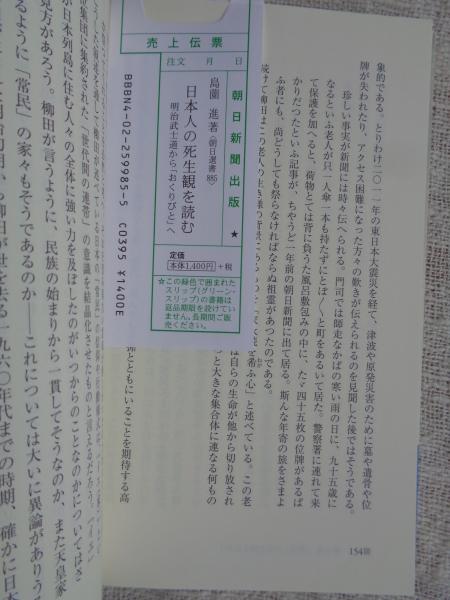 売上伝票
注文　月　日
朝日新聞出版
★
島薗 進 著〈朝日選書 885〉
日本人の死生観を読む
明治武士道から「おくりびと」へ
定価
本体1,400円 +税
☆この緑色で囲まれたスリップ(グリーン・スリップ)の書籍は返品期限を設けていません。長期間ご販売ください。
BBBN4-02-259985-5 C0395 ¥1400E
象的である。とりわけ二〇一一年の東日本大震災を経て、津波や原発災害のために墓や遺骨や位
牌が失われたり、アクセス困難になった方々の歎きが伝えられるのを見聞した後ではそうである。
珍しい事実が新聞には時々伝へられる。門司では師走なかばの寒い雨の日に、九十五歳に
なるといふ老人が只一人傘一本も持たずにとぼ〱と町をあるいて居た。警察署に連れて来
て保護を加へると、荷物とては背に負うた風呂敷包みの中に、たゞ四十五枚の位牌があるば
かりだつたといふ記事が、ちやうど一年前の朝日新聞に出て居る。斯んな年寄の旅をさまよ
ふ者にも、尚どうしても祭らなければならぬ祖霊があつたのである。
を希ふ心」と述べている。この老
は自らの生命が他から切り放され
っと大きな集合体に連なる何もの
孫とともにいることを期待する高
に集約された、「世代間の連帯」の意識を結晶化させたものと言えるだろう。「イエ」
が日本列島に住む人々の全体に強い力を及ぼしたのがいつからのことなのかについてはさ
見方があろう。柳田が言うように、民族の始まりから一貫してそうなのか、また天皇家
るように「常民」の家々もそうであるのか――これについては大いに異論がありう
柳田が世を去る一九六〇年代までの時期、確かに日本
154